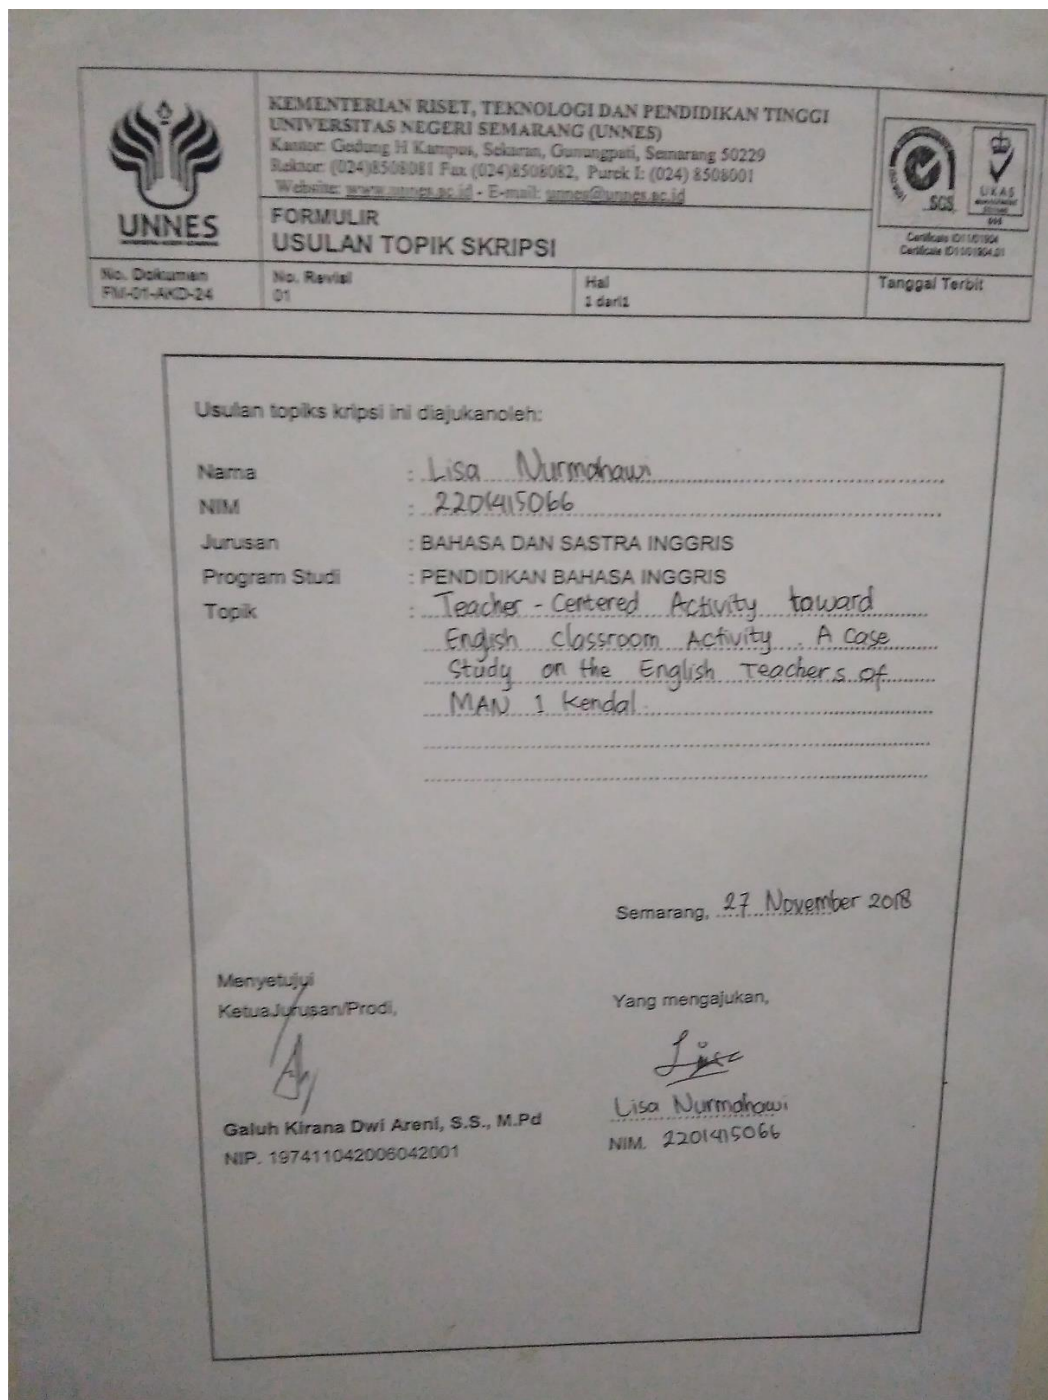 KEMENTERIAN RISET, TEKNOLOGI DAN PENDIDIKAN TINGGI
UNIVERSITAS NEGERI SEMARANG (UNNES)
Kantor: Gedung H Kampus, Sekaran, Gunungpati, Semarang 50229
Rektor: (024)8508081 Fax (024)8508082, Purek I: (024) 8508001
Website: www.unnes.ac.id - E-mail: unnes@unnes.ac.id
UNNES
FORMULIR
USULAN TOPIK SKRIPSI
SGS
UKAS
MANAGEMENT
SYSTEMS
Certificate ID11/01904
Certificate ID11/01904.01
No. Dokumen
FM-01-AKD-24
No. Revisi
01
Hal
1 dari1
Tanggal Terbit
Usulan topiks kripsi ini diajukanoleh:
Nama : Lisa Nurmahawi
NIM : 2201415066
Jurusan : BAHASA DAN SASTRA INGGRIS
Program Studi : PENDIDIKAN BAHASA INGGRIS
Topik : Teacher - Centered Activity toward
English classroom Activity . A Case
Study on the English Teachers of
MAN 1 Kendal.
Semarang, 27 November 2018
Menyetujui
KetuaJurusan/Prodi,
Yang mengajukan,
Lisa
Galuh Kirana Dwi Areni, S.S., M.Pd
NIP. 197411042006042001
Lisa Nurmahawi
NIM. 2201415066